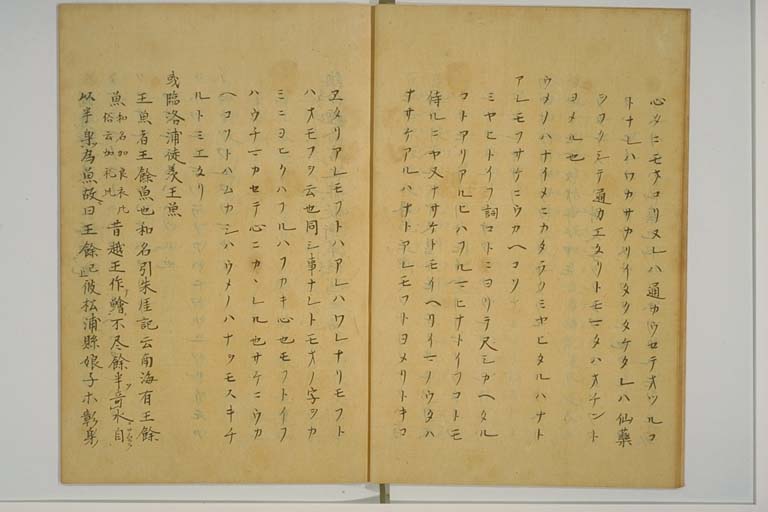 心タニモオコリヌレハ通力ウセテオツルコ
トナレハワカサカリイタクタケタレハ仙藥
ヲフクシテ通力エタリトモマタハオチント
ヨメル也
ウメノハナイメニカタラクミヤヒタルハナト
アレモフサケニウカヘコソ
ミヤヒトイフ詞コトニヨリテ尺シカヘタル
コトアリアルヒハフルマヒナトイフコトモ
侍ルニヤ又ナサケトモイヘリイマノウタハ
ナサケアルハナトアレモフトヨメリトキコ
エタリアレモフトハアレハワレナリモフト
ハオモフヲ云也同シ事ナレトモオノ字ヲカ
ミニヨヒクハフルハフカキ心也モフトイフ
ハウチマカセテ心ニカヽレル也サケニウカ
ヘコソトハムカシハウメノハナヲモスキチ
ルトミエタリ
或臨洛浦徒羨王魚
王魚者王餘魚也和名引朱崖記云南海有王餘
魚 和名加良衣比 俗云加礼比 昔越王作鱠不尽餘半弃水自
以半身為魚故曰王餘已彼松浦縣娘子ホ彰身